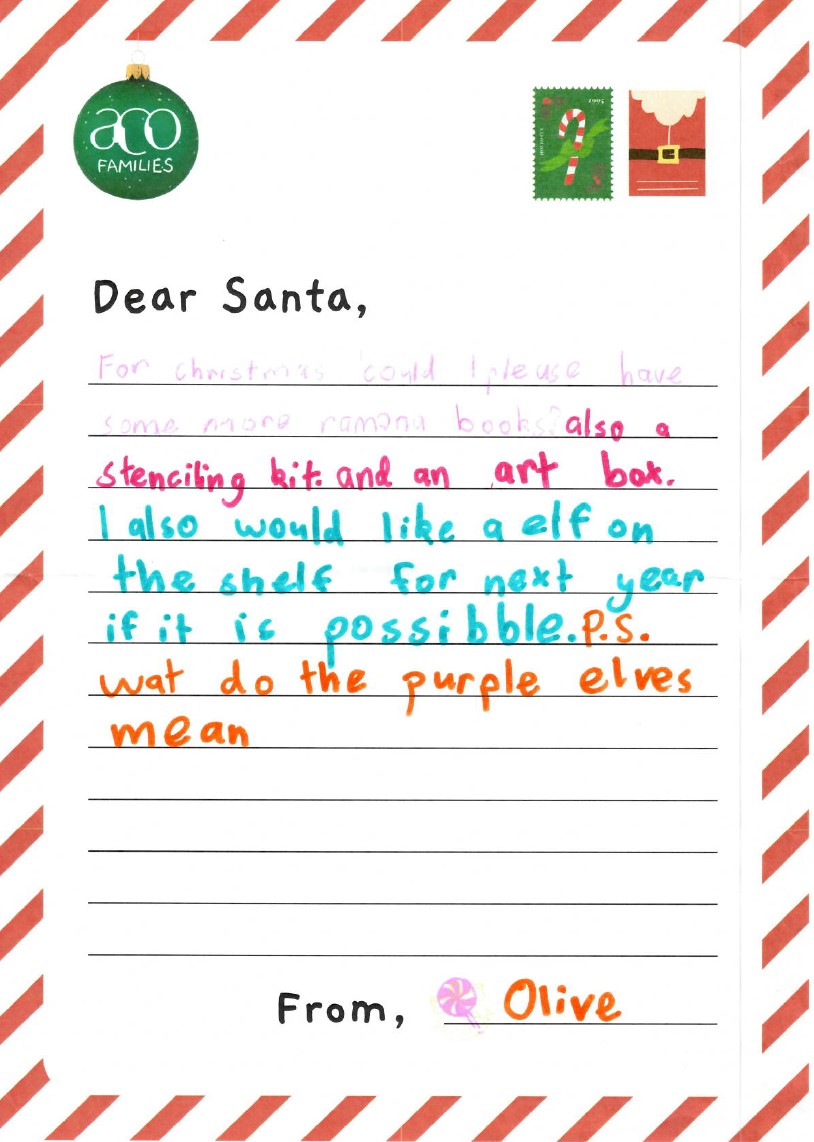 aco
FAMILIES
Dear Santa,
For christmas could I please have
some more ramona books? also a
stenciling kit. and an art box.
I also would like a elf on
the shelf for next year
if it is possibble. P.S.
wat do the purple elves
mean
From, Olive